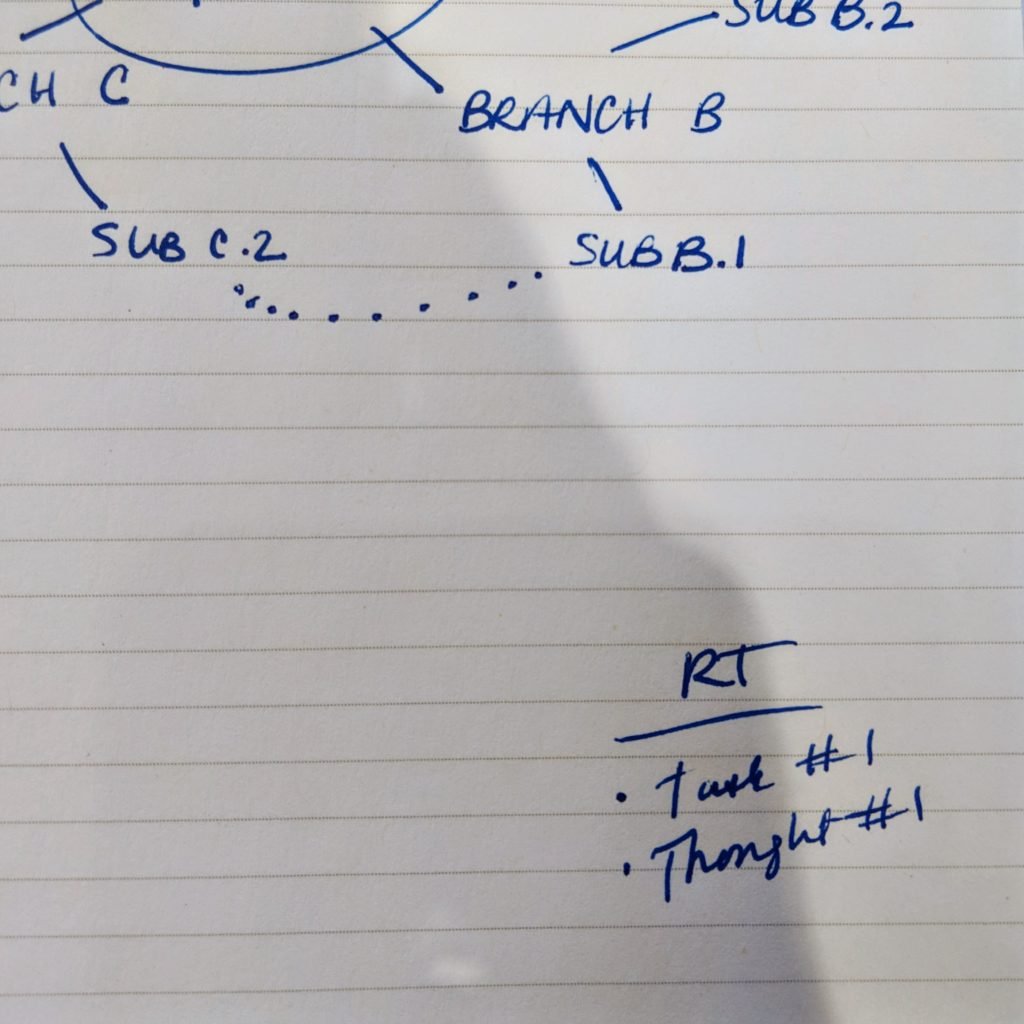 SUB B.2
CH C
BRANCH B
SUB C.2
SUB B.1
RT
• Task #1
• Thought #1